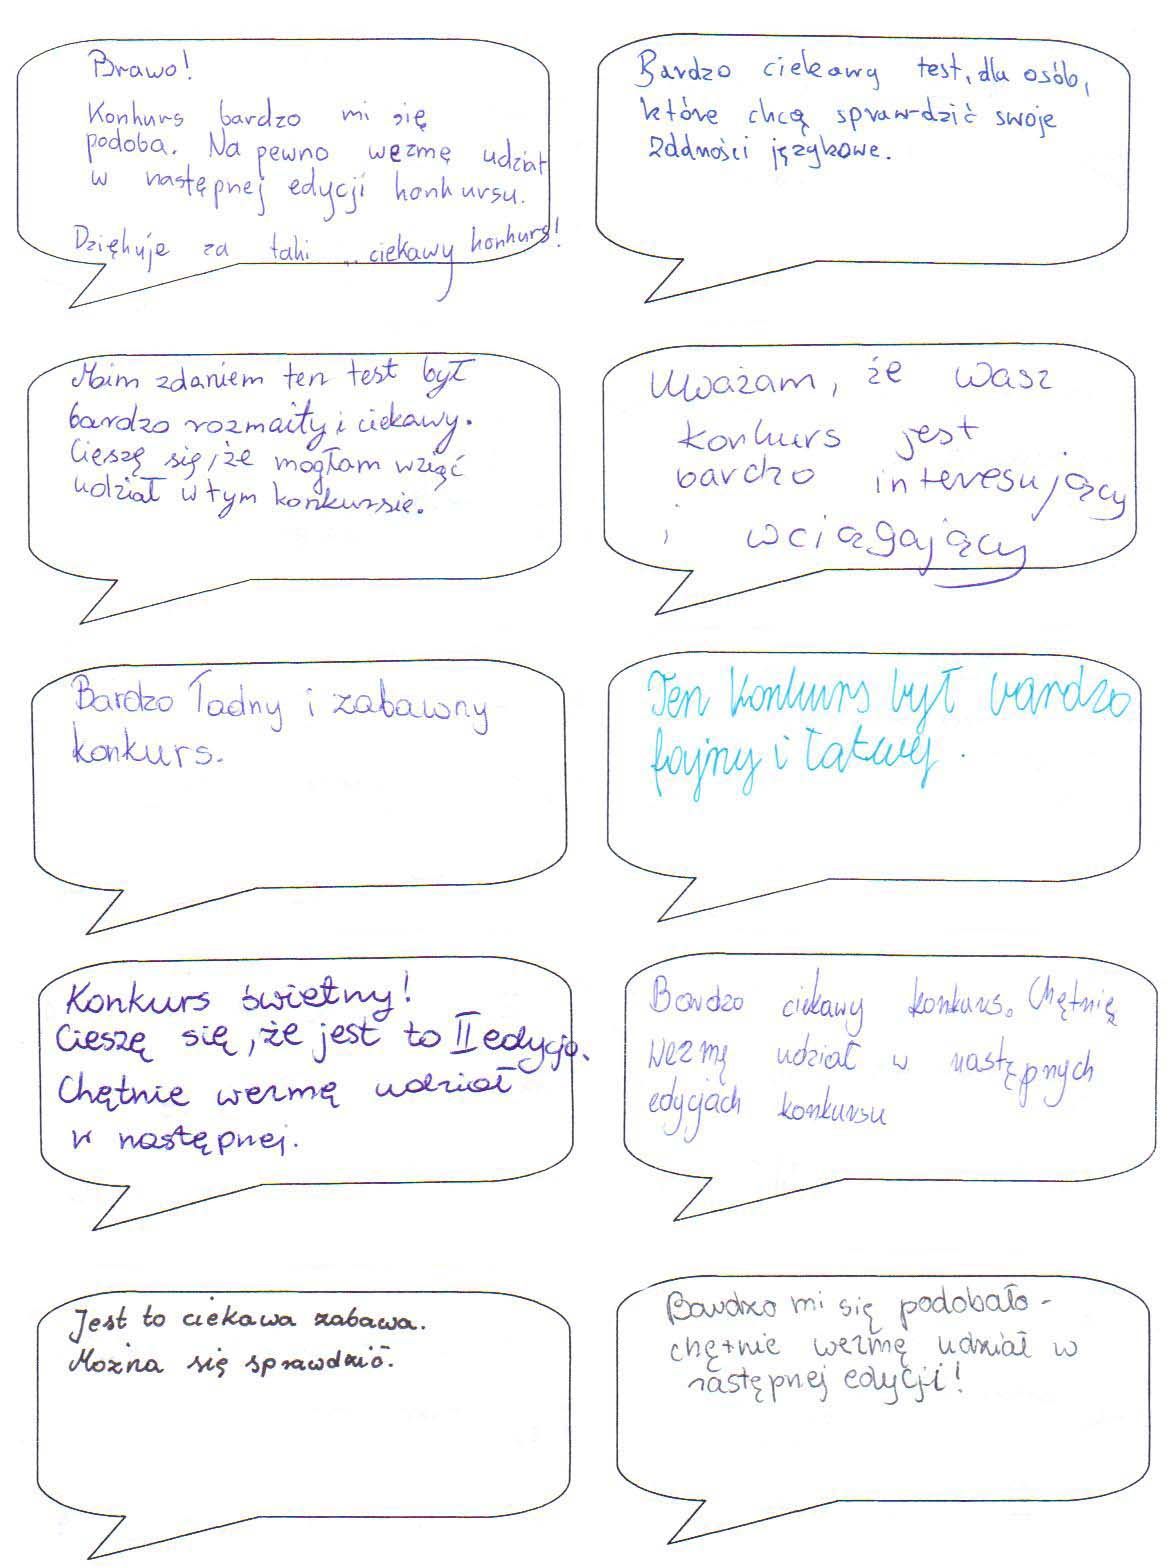 Brawo!
Konkurs bardzo mi się
podoba. Na pewno wezmę udział
w następnej edycji konkursu.
Dziękuje za taki ciekawy konkurs!
Bardzo ciekawy test, dla osób,
które chcą sprawdzić swoje
zddności językowe.
Moim zdaniem ten test był
bardzo rozmaity i ciekawy.
Cieszę się, że mogłam wziąć
udział w tym konkursie.
Uważam, że wasz
konkurs jest
bardzo interesujący
i wciągający
Bardzo ładny i zabawny
konkurs.
Ten konkurs był bardzo
fajny i łatwy.
Konkurs świetny!
Cieszę się, że jest to II edycja.
Chętnie wezmę udział
w następnej.
Bardzo ciekawy konkurs. Chętnię
wezmę udział w następnych
edycjach konkursu
Jest to ciekawa zabawa.
Można się sprawdzić.
Bardzo mi się podobało -
chętnie wezmę udział w
następnej edycji!